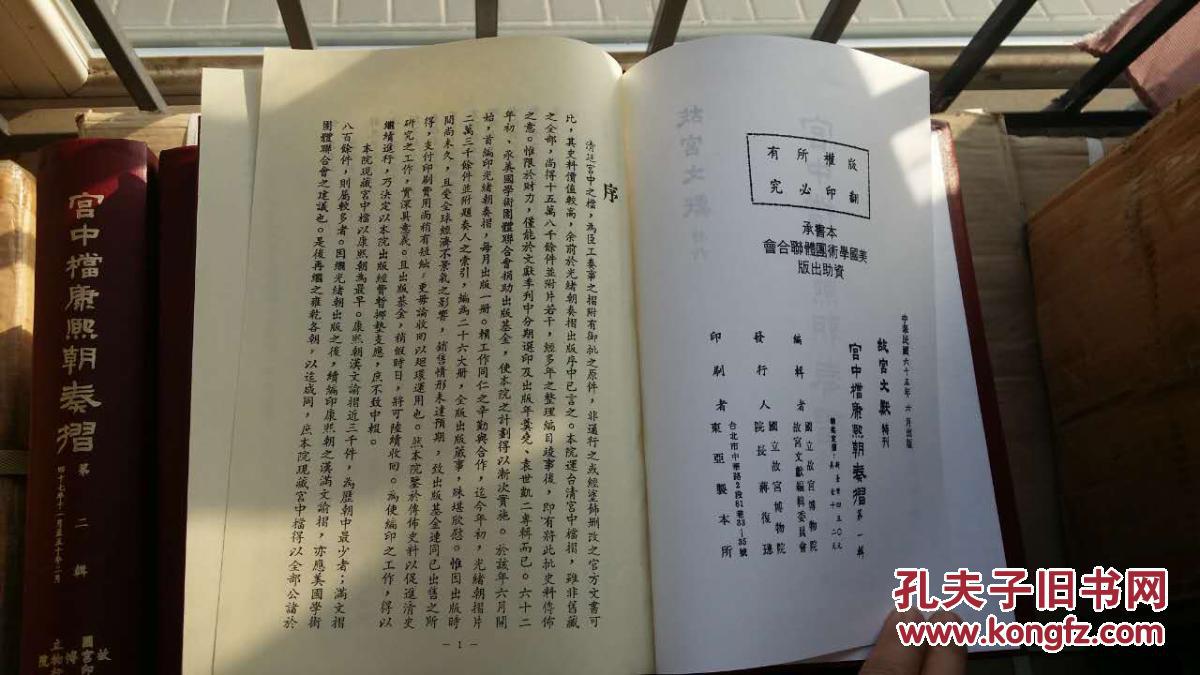 宮中檔康熙朝奏摺
第二輯
四十七年十一月至五十年二月
版權所有
翻印必究
本書承
美國學術團體聯合會
資助出版
中華民國六十五年六月出版
故宮文獻特刊
宮中檔康熙朝奏摺第一輯
編輯者
國立故宮博物院
故宮文獻編輯委員會
發行人
國立故宮博物院
院長蔣復璁
印刷者東亞製本所
台北市中華路2段61巷33-35號
序
清廷宮中之檔，為臣工奏事之摺附有御批之原件，非通行之或經塗飾刪改之官方文書可
比，其史料價值較高，余前於光緒朝奏摺出版序中已言之。本院運台清宮中檔摺，雖非舊藏
之全部，尚得十五萬八千餘件並附片若干，經多年之整理編目竣事後，即有將此批史料傳佈
之意。惟限於財力，僅能於文獻季刊中分期選印及出版年羹堯、袁世凱二專輯而已。六十二
年初、承美國學術團體聯合會捐助出版基金，使本院之計劃得以漸次實施。於該年六月開
始，首編印光緒朝奏摺，每月出版一冊。賴工作同仁之辛勤與合作，迄今年初，光緒朝摺片
二萬三千餘件並附題奏人之索引，編為二十六大冊，全版出版蕆事，殊堪欣慰。惟因出版時
間尚未久，且受全球經濟不景氣之影響，銷售情形未達預期，致出版基金連同已出售之所
得，支付印刷費用尚稍有短絀；更毋論收回以迴環運用也。然本院鑒於傳佈史料以促進清史
研究之工作，實深具意義。且出版基金，稍假時日，將可陸續收回。為使編印之工作，得以
繼續進行，乃決定以本院出版經費暫挪墊支應，庶不致中輟。
本院現藏宮中檔以康熙朝為最早。康熙朝漢文諭摺近三千件，為歷朝中最少者；滿文摺
八百餘件，則屬較多者。因繼光緒朝出版之後，續編印康熙朝之漢滿文諭摺，亦應美國學術
團體聯合會之建議也。是後再繼之雍乾各朝，以迄咸同，庶本院現藏宮中檔得以全部公諸於
— 1 —
孔夫子旧书网
www.kongfz.com